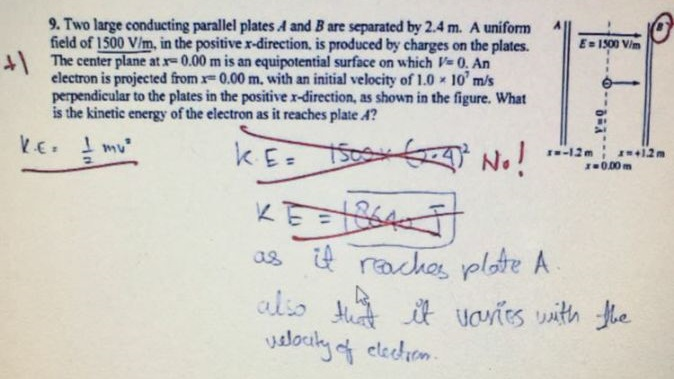 9. Two large conducting parallel plates A and B are separated by 2.4 m. A uniform
field of 1500 V/m, in the positive x-direction, is produced by charges on the plates.
The center plane at x= 0.00 m is an equipotential surface on which V= 0. An
electron is projected from x= 0.00 m, with an initial velocity of 1.0 × 10⁷ m/s
perpendicular to the plates in the positive x-direction, as shown in the figure. What
is the kinetic energy of the electron as it reaches plate A?
A
B
E = 1500 V/m
V=0
x=-1.2m
x=+1.2m
x=0.00m
+1
K.E = 1/2 mv²
K.E = 1500 × (2.4)² No!
KE = 8640 J
as it reaches plate A.
also that it varies with the
velocity of electron.